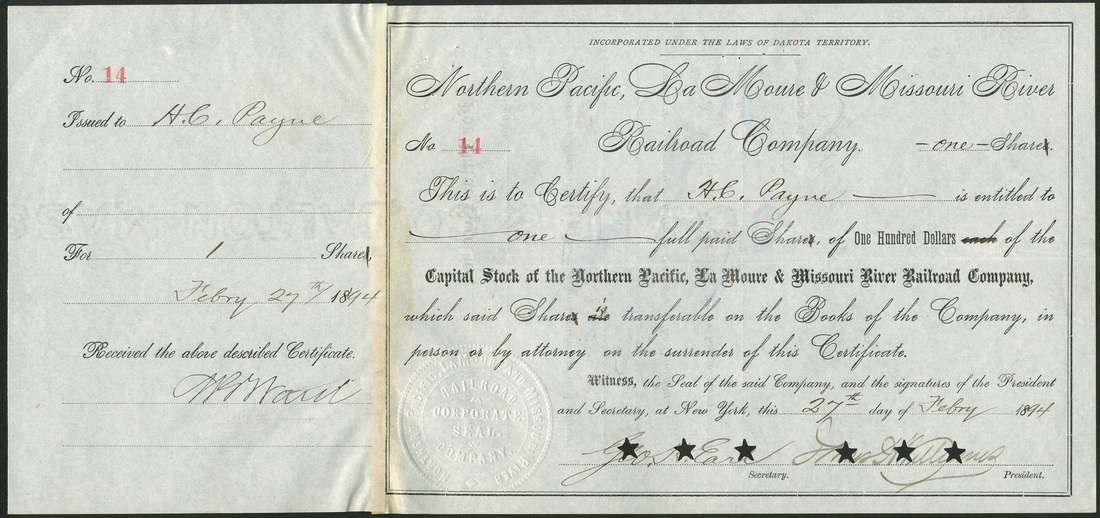 No. 14
Issued to H.C. Payne
of
For 1 Share,
Febry 27th 1894
Received the above described Certificate.
INCORPORATED UNDER THE LAWS OF DAKOTA TERRITORY.
Northern Pacific, La Moure & Missouri River
No 14 Railroad Company. - one - Share.
This is to Certify, that H.C. Payne is entitled to
one full paid Share, of One Hundred Dollars each of the
Capital Stock of the Northern Pacific, La Moure & Missouri River Railroad Company,
which said Share is transferable on the Books of the Company, in
person or by attorney on the surrender of this Certificate.
Witness, the Seal of the said Company, and the signatures of the President
and Secretary, at New York, this 27th day of Febry 1894
Geo. H. Earl
Secretary. President.
NORTHERN PACIFIC, LA MOURE AND MISSOURI RIVER
RAILROAD
CORPORATE
SEAL.
COMPANY.